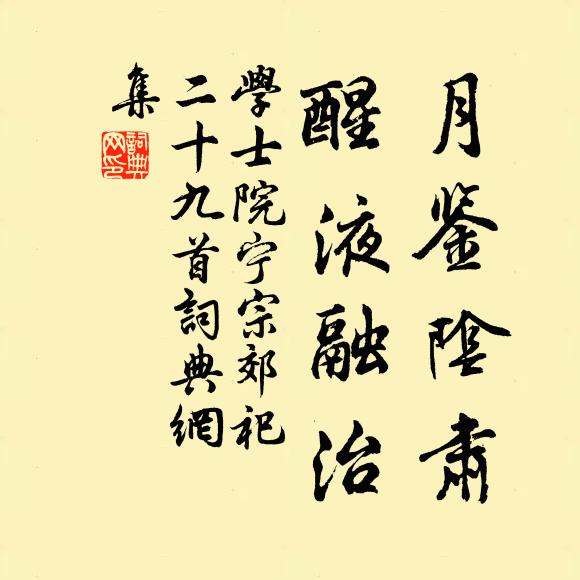 月鉴陰肃
醒液融治
學士院宁宗郊祀
二十九首詞典網
集
詞典
网印